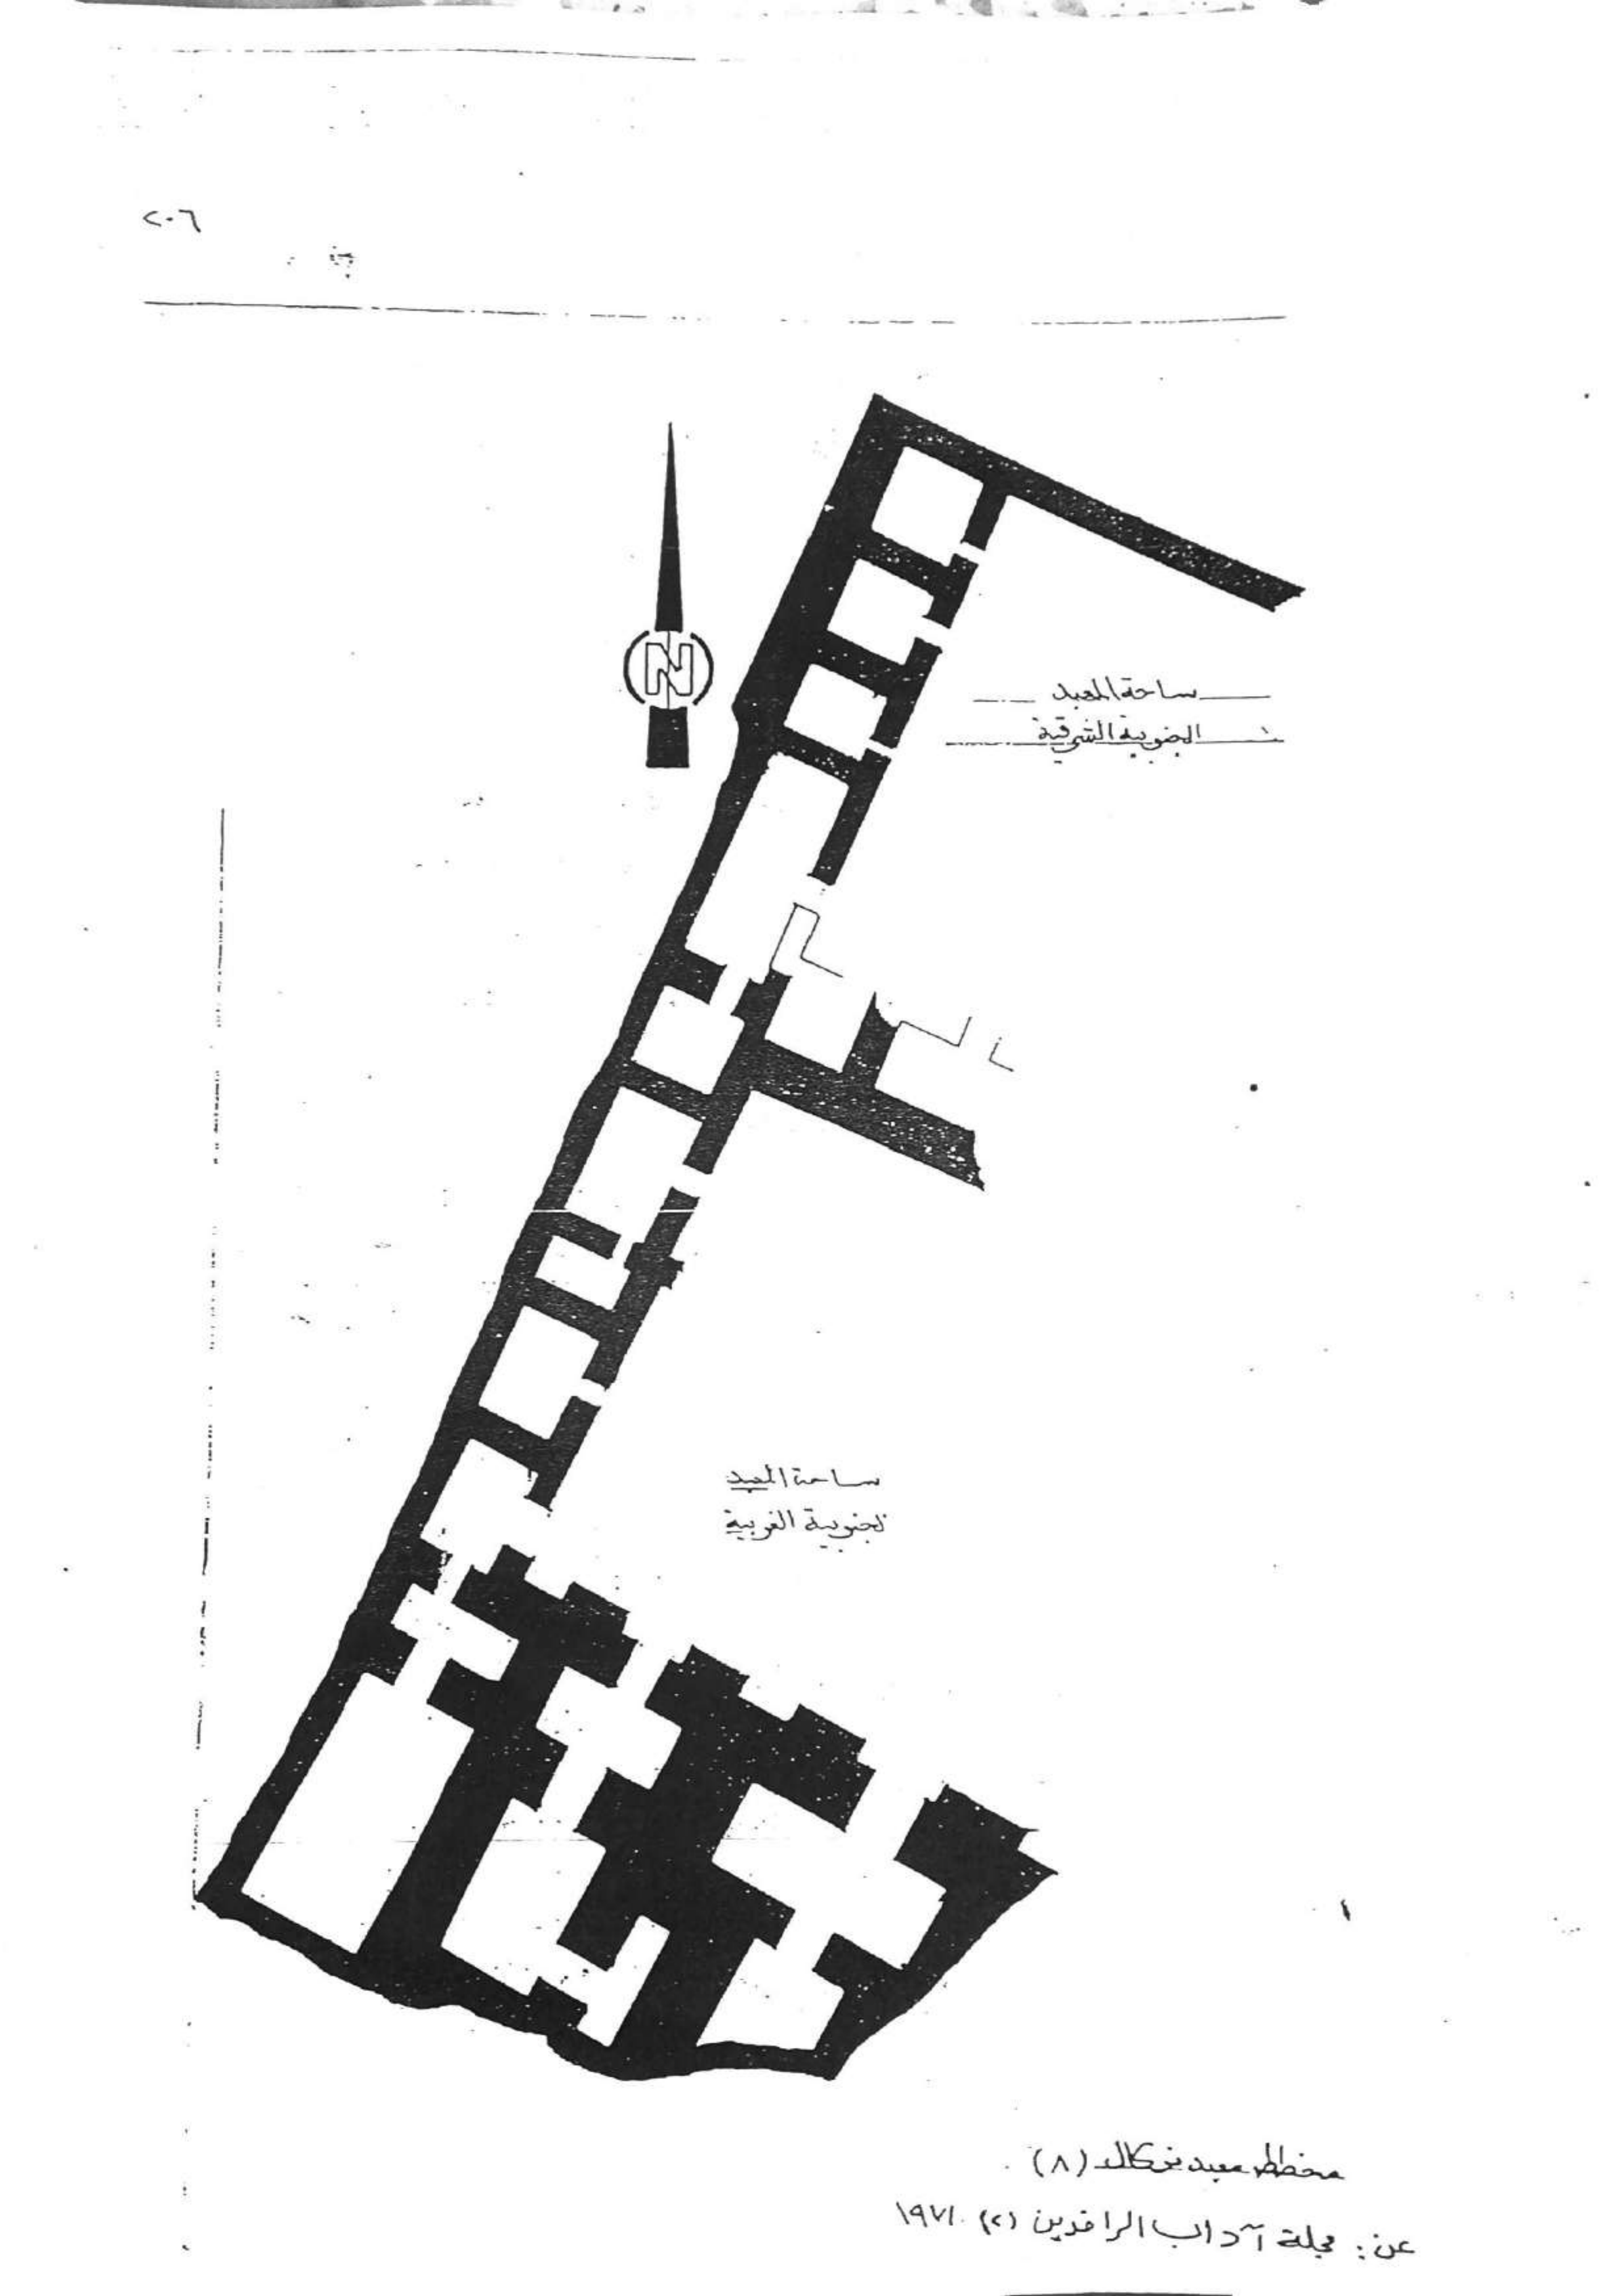 ٢٠٦
N
ساحة المعبد
الجنوبية الشرقية
ساحة المعبد
لجنوبية الغربية
مخطط معبد نركال (٨)
عن: مجلة آداب الرافدين (٢) ١٩٧١.